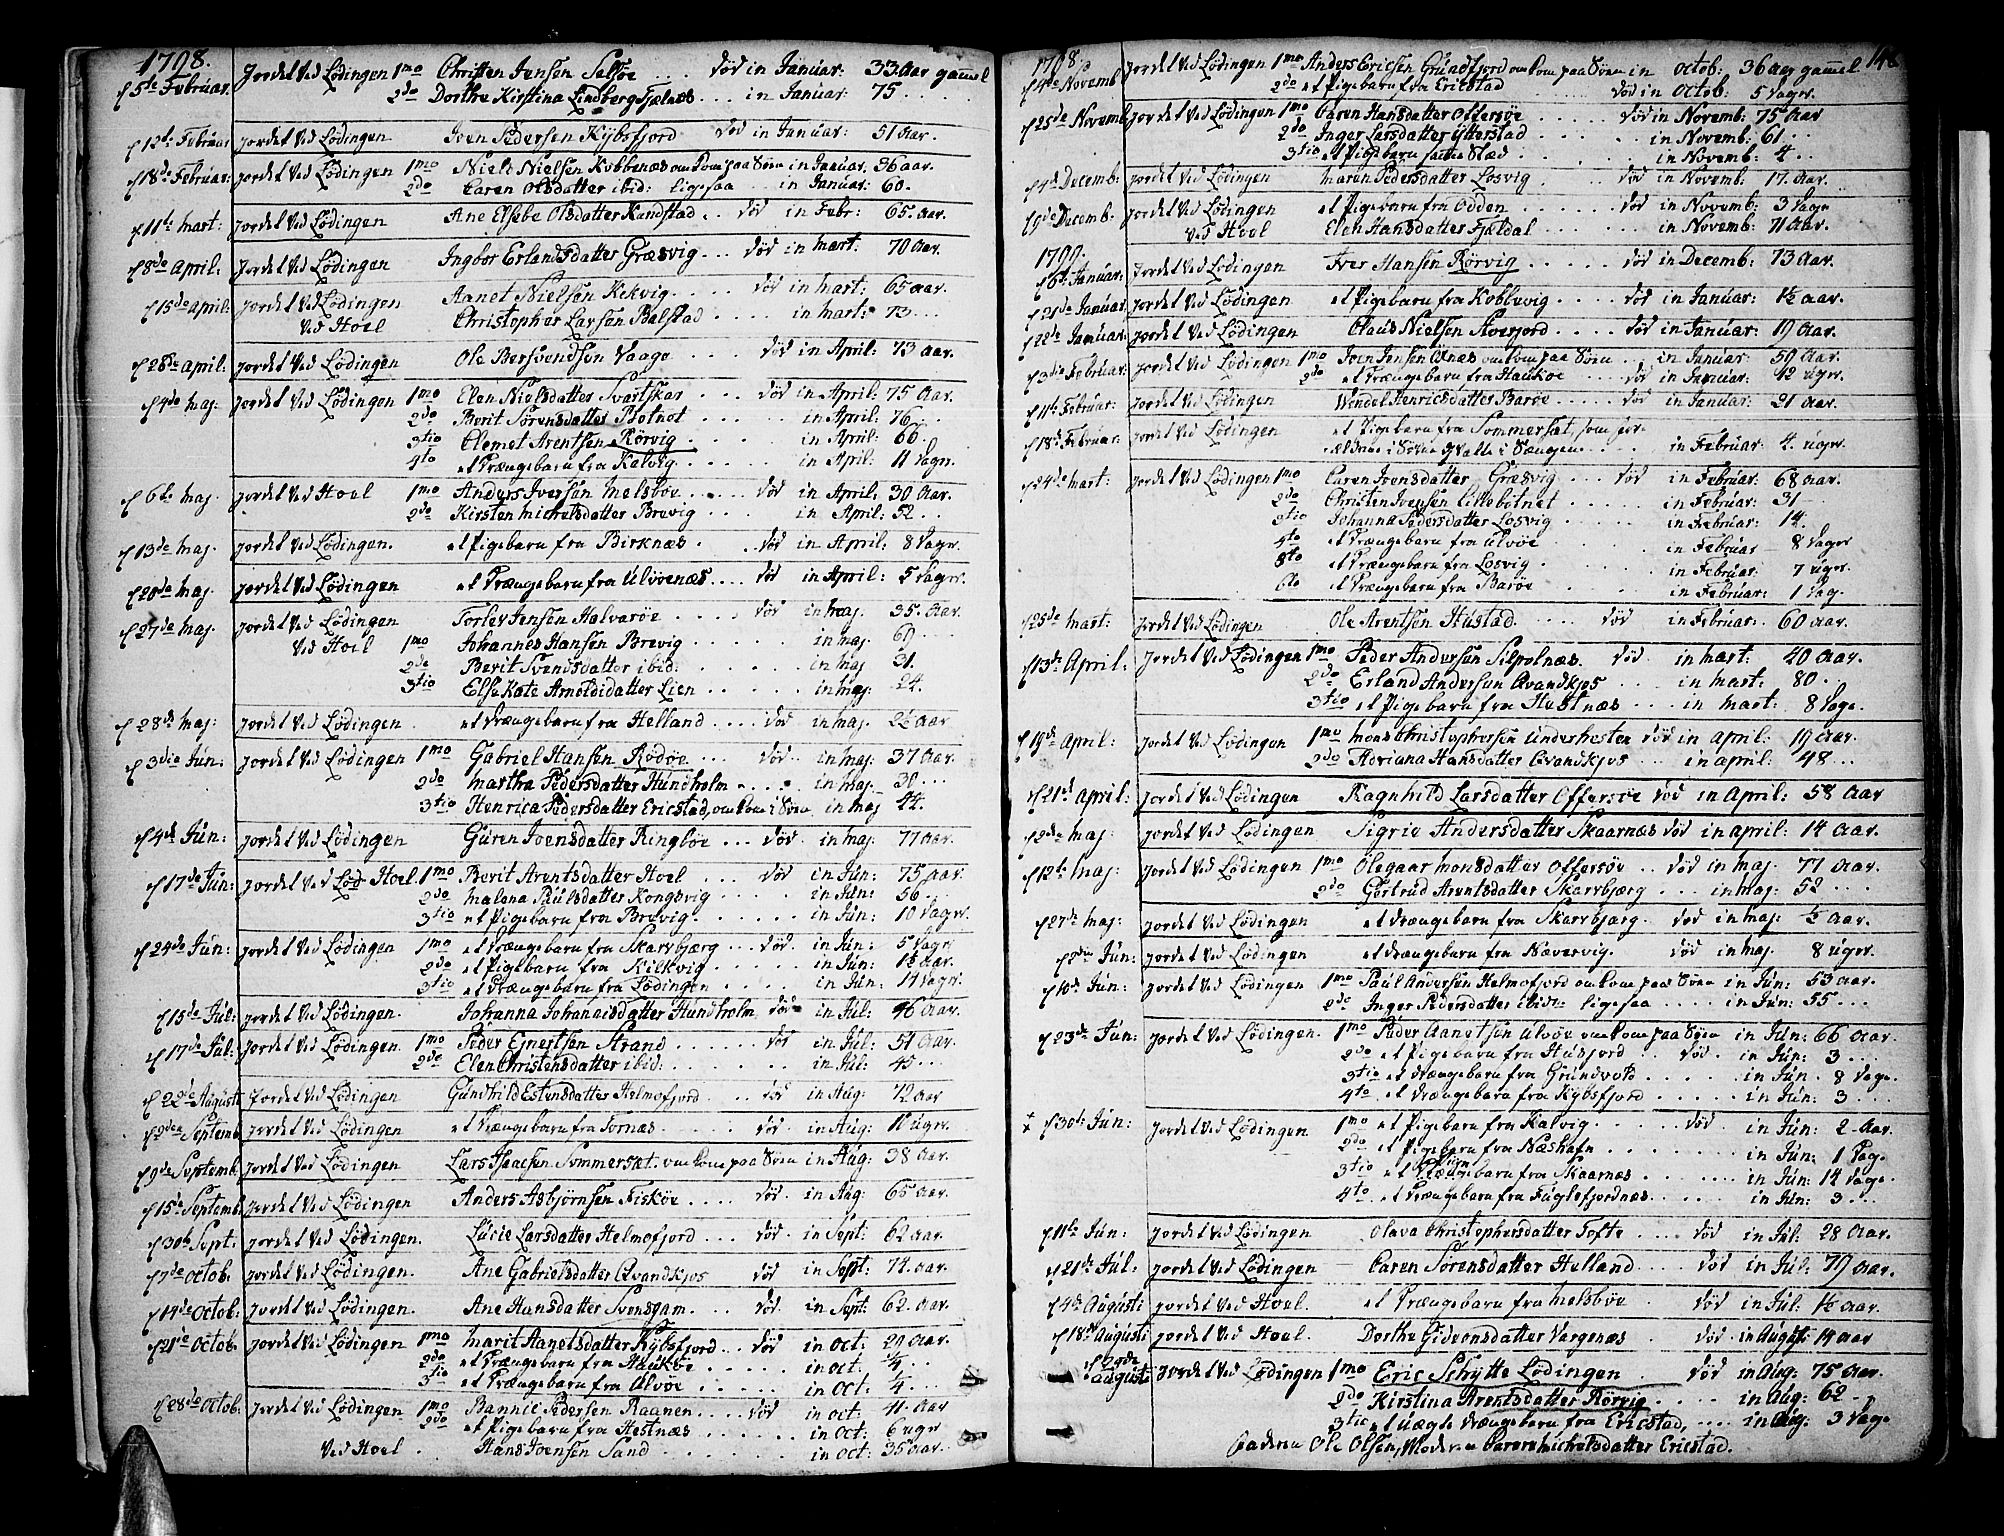 1798.
d 5te Februar. Jordet ved Lødingen 1mo Christen Jensen Selsøe .... død in Januar: 33 Aar gamel
2do Dorthe Kirstina Lindberg Fjelnæs ... in Januar: 75 ...
d 12te Februar Jordet ved Lødingen Joen Pedersen Kjybsfjord død in Januar: 51 Aar.
d 18de Februar: Jordet ved Lødingen 1mo Niels Nielsen Kobbenæs omkom paa Søen in Januar. 36 aar.
2do Caren Olsdatter ibid: ligesaa ... in Januar: 60.
d 11te Mart: Jordet ved Lødingen Ane Elsebe Olsdatter Kandstad .. død in Febr: 65 Aar.
d 8de April. Jordet ved Lødingen Ingbor Erlandsdatter Græsvig ... død in Mart: 70 Aar.
d 15de April: Jordet ved Lødingen Aanet Nielsen Kekvig .... død in Mart: 65 aar.
Ved Hoel Christopher Larsen Balstad ... in Mart: 73 ...
d 26de April: Jordet ved Lødingen Ole Bersvendsen Vaage .... død in April: 73 Aar.
d 4de Maj Jordet ved Lødingen 1mo Elen Nielsdatter Svartskar .. død in April: 75 Aar.
2do Berit Sørensdatter Botnet .... in April: 76 ...
3tio Clemet Arentsen Rørvig .... in April: 66
4to et Drængebarn fra Kalvig ..... in April: 11 Dager.
d 6te Maj Jordet ved Hoel 1mo Anders Iversen Melsboe ..... død in April: 30 Aar.
2do Kirsten Michelsdatter Brevig ... in April: 52 ...
d 13de Maj. Jordet ved Lødingen. et Pigebarn fra Birknæs ... død in April: 8 Dager.
d 20de Maj. Jordet ved Lødingen et Drængebarn fra Ulvøenæs ... død in April: 5 Dager.
d 27de Maj Jordet ved Lødingen Torlev Jensen Halvarøe .... død in Maj. 35. Aar.
Ved Hoel 1mo Johannes Hansen Brevig .... in Maj 69 ...
2do Berit Svendsdatter ibid: .... in Maj 31.
3tio Else Kate Arnoldidatter Lien ..... in Maj. 24.
d 28de Maj: Jordet ved Lødingen. et Drængebarn fra Helland ... død in Maj. 2½ Aar
d 3die Jun: Jordet ved Lødingen 1mo Gabriel Hansen Rodøe ... død in Maj. 37 Aar.
2do Martha Pedersdatter Hundholm .... in Maj. 38 ...
3tio Henrica Pedersdatter Ericstad, omkom i Søen in Maj 44.
d 4de Jun: Jordet ved Lødingen Guren Joensdatter Ringbøe ... død. in Maj. 77 Aar.
d 17de Jun: Jordet ved Hoel. 1mo Berit Arentsdatter Hoel .... død in Jun: 75 Aar.
2do Malena Poulsdatter Kongsvig .... in Jun: 56 ..
3tio et Pigebarn fra Brevig ..... in Jun: 10 Dager.
d 24de Jun: Jordet ved Lødingen 1mo et Drængebarn fra Skarvbjærg ... død. in Jun: 5 Dager
2do et Pigebarn fra Kilkvig ..... in Jun: 1½ Aar.
3tio et Drængebarn fra Lødingen .... in Jun: 14 Dager.
d 15de Jul: Jordet ved Lødingen. Johanna Johanaisdatter Hundholm død in Jul: 46 Aar.
d 17de Jul: Jordet ved Lødingen. 1mo Peder Ejnertsen Strand .... død in Jul: 54 Aar.
2do Elen Christensdatter ibid: ...... in Jul: 45 ...
d 22de Augusti Jordet ved Lødingen Gundhild Estensdatter Helmofjord ... død in Aug: 72 Aar
d 2den Septemb. Jordet ved Lødingen et Drængebarn fra Tornæs ..... død. in Aug: 10 uger.
d 9de Septemb. Jordet ved Lødingen Lars Isaacsen Sommersæt. omkom paa Søen in Aug: 38 Aar.
d 15de Septemb. Jordet ved Lødingen Anders Asbjørnsen Fiskøe ..... død. in Aug. 65 Aar.
d 30te Sept: Jordet ved Lødingen. Lucie Larsdatter Helmofjord .... død. in Sept: 62 aar.
d 7de Octob. Jordet ved Lødingen. Ane Gabrielsdatter Qvandkjos død in Sept: 74. aar.
d 14de Octob. Jordet ved Lødingen. Ane Hansdatter Svensgam ..... død. in Sept: 62. Aar.
d 21de Octob. Jordet ved Lødingen 1mo Marit Aanetsdatter Kjybsfjord .. død in Oct: 20 Aar.
2do et Drængebarn fra Haukøe ..... in Oct. ¼ ...
3tio et Drængebarn fra Ulvøe ..... in Oct: ¼ ...
d 28de Octob. Jordet ved Lødingen 1mo Bannic Pedersen Raanen .... død in Oct: 41 Aar
2do et Pigebarn fra Hestnæs ...... in Oct: 6 uger
Ved Hoel. Hans Joensen Sand ........ in Oct: 35 Aar...
1798.
146
d 4de Novemb Jordet ved Lødingen 1mo Anders Ericsen Grundfjord omkom paa Søen in Octob: 36 aar gamel
2do et Pigebarn fra Ericstad .... død in Octob: 5 Dager.
d 25de Novemb. Jordet ved Lødingen 1mo Caren Hansdatter Offersøe ..... død in Novemb: 75 Aar
2do Inger Larsdatter Ytterstad .... in Novemb: 61 ...
3tio et Pigebarn samme Stæd ..... in Novemb: 4 ...
d 4de Decemb: Jordet ved Lødingen Maren Pedersdatter Losvig .... død in Novemb: 17. Aar.
d 9de Decemb. Jordet ved Lødingen et Pigebarn fra Odden ..... død in Novemb: 3 Dager
ved Hoel Elen Hansdatter Fjeldal ..... in Novemb: 71 Aar.
1799.
d 6te Januar: Jordet ved Lødingen Iver Hansen Rørvig ..... død in Decemb: 73 Aar.
d 21de Januar. Jordet ved Lødingen et Pigebarn fra Kobbevig .... død in Januar: 1½ Aar.
d 22de Januar: Jordet ved Lødingen Claus Nielsen Stoerfjord .... død in Januar: 19 Aar.
d 3die Februar: Jordet ved Lødingen 1mo Joen Jensen Øxnæs omkom paa Søen ... in Januar: 59 Aar.
2do et Drængebarn fra Haukøe .... død in Januar: 12 uger.
d 11te Februar: Jordet ved Lødingen Wendel Henricsdatter Barøe .... død in Januar: 21 Aar.
d 18de Februar. Jordet ved Lødingen et Pigebarn fra Sommersæt, som for-
ældrene i Søvne qvalte i Sængen .... in Februar: 4. uger.
d 24de Mart: Jordet ved Lødingen 1mo Caren Ivensdatter Græsvig .... død in Februar: 68 Aar.
2do Christen Ivensen Lillebotnet ..... in Februar: 31 ..
3tio Johanna Pedersdatter Losvig ..... in Februar: 14.
4to et Drængebarn fra Ulvøe .... in Februar 8 Dager
5to et Drængebarn fra Losvig .... in Februar: 7 uger.
6to et Drængebarn fra Barøe .... in Februar: 1 Dag.
d 25de Mart: Jordet ved Lødingen Ole Arentsen Hustad ..... død in Februar: 60 Aar.
d 13de April: Jordet ved Lødingen 1mo Peder Andersen Silpolnæs. død in Mart: 40 Aar.
2do Erland Andersen Qvandkjos .... in Mart: 80 .
3tio et Pigebarn fra Hustnæs .... in Mart: 8 Dage.
d 19de April: Jordet ved Lødingen 1mo Mons Christophersen Underhesten død in April: 19 Aar.
2do Adriana Hansdatter Qvandkjos ... in April: 48 ...
d 21de April: Jordet ved Lødingen Ragnhild Larsdatter Offersøe død in April: 58 Aar
d 2de Maj Jordet ved Lødingen Sigrie Andersdatter Skaarnæs død in April: 14 Aar.
d 12te Maj: Jordet ved Lødingen 1mo Olegaar Monsdatter Offersøe .. død in Maj. 77 Aar.
2do Gertrud Arentsdatter Skarvbjærg ... in Maj: 52 ....
d 27de Maj: Jordet ved Lødingen et Drængebarn fra Skarvbjærg. død in Maj: ½ Aar.
d 2den Jun: Jordet ved Lødingen et Drængebarn fra Nævervig. død in Maj. 8 uger.
d 10de Jun: Jordet ved Lødingen 1mo Paul Andersen Helmofjord omkom paa Søen in Jun: 53 Aar.
2do Inger Pedersdatter ibid: ligesaa .... in Jun: 55 ...
d 23de Jun: Jordet ved Lødingen. 1mo Peder Aanetsen Ulvøe omkom paa Søen in Jun: 66 Aar.
2do et Pigebarn fra Husfjord .. død. in Jun: 3 ....
3tio et Drængebarn fra Grundvold ..... in Jun. 8 Dage.
4to et Drængebarn fra Kjybsfjord ...... in Jun: 3 ....
d 30te Jun: Jordet ved Lødingen 1mo et Pigebarn fra Kalvig ...... død. in Jun: 2 Aar.
2do et Pigebarn fra Næshafn ....... in Jun: 1 Dag.
3tio et Drængebarn fra Skaarnæs ...... in Jun: 14 Dage.
4to et Drængebarn fra Fuglefjordnæs ..... in Jun: 3 ...
d 11te Jun: Jordet ved Lødingen Olava Christophersdatter Tofte .... død in Jul: 28 Aar.
d 21de Jul: Jordet ved Lødingen Caren Sørensdatter Helland .... død in Jul: 79 Aar.
d 4de Augusti Jordet ved Hoel. et Drængebarn fra Melsbøe ..... død in Jul. 1½ Aar.
d 18de Augusti Jordet ved Hoel. Dorthe Gideonsdatter Vargenæs ... død in August. 14 aar
d 29de Augusti Jordet ved Lødingen 1mo Eric Schytte Lødingen .. død in Aug: 75 Aar.
2do Kirstina Arentsdatter Rørvig ..... in Aug: 62 ...
3tio et uægte Drængebarn fra Ericstad, .... in Aug: 3 Dage
Faderen Ole Olsen, Moderen Caren Michelsdatter Ericstad.